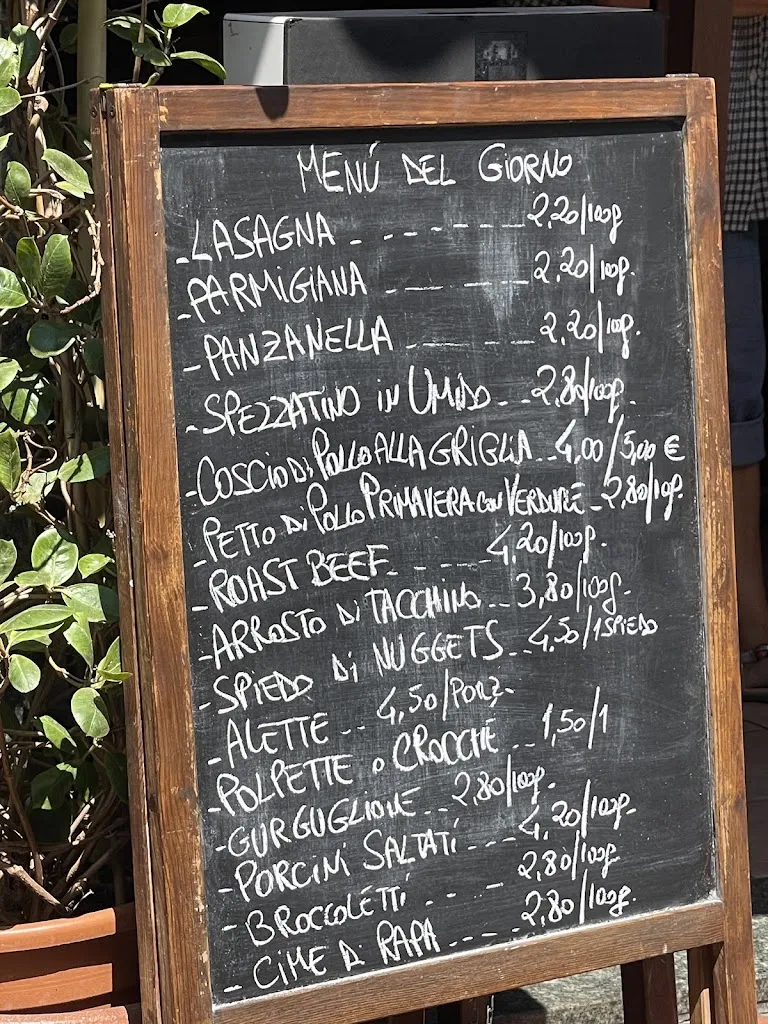 MENÚ DEL GIORNO
- LASAGNA - - - - - - - 2,20/100g
- PARMIGIANA - - - - - - 2,20/100g.
- PANZANELLA - - - - - 2,20/100g.
- SPEZZATINO in UMIDO - - 2,80/100g.
- COSCIO Di POLLO ALLA GRIGLIA - - 4,00/5,00 €
- PETTO Di POLLO PRIMAVERA con VERDURE - 2,80/10g.
- ROAST BEEF - - - - - 4,20/100g.
- ARROSTO Di TACCHINO - - 3,80/100g.
- SPIEDO Di NUGGETS - - 4,50/1 SPIEDO
- ALETTE - - 4,50/PORZ.
- POLPETTE o CROCCHÉ - - 1,50/1
- GURGUGLIONE - - 2,80/100g.
- PORCINI SALTATI - - - 4,20/100g.
- BROCCOLETTI - - - - 2,80/100g.
- CIME Di RAPA - - - - 2,80/100g.